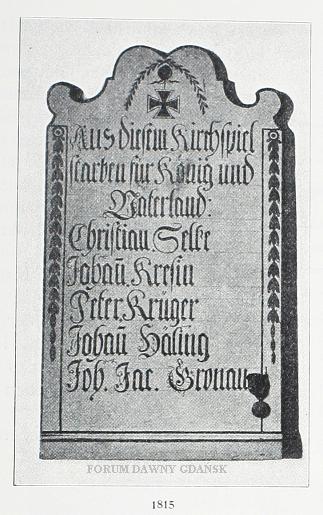 Aus diesem Kirchspiel
starben für König und
Vaterland:
Christian Selke
Johañ. Kresin
Peter Krüger
Johañ Häling
Joh. Jac. Gronau
FORUM DAWNY GDAŃSK
1815